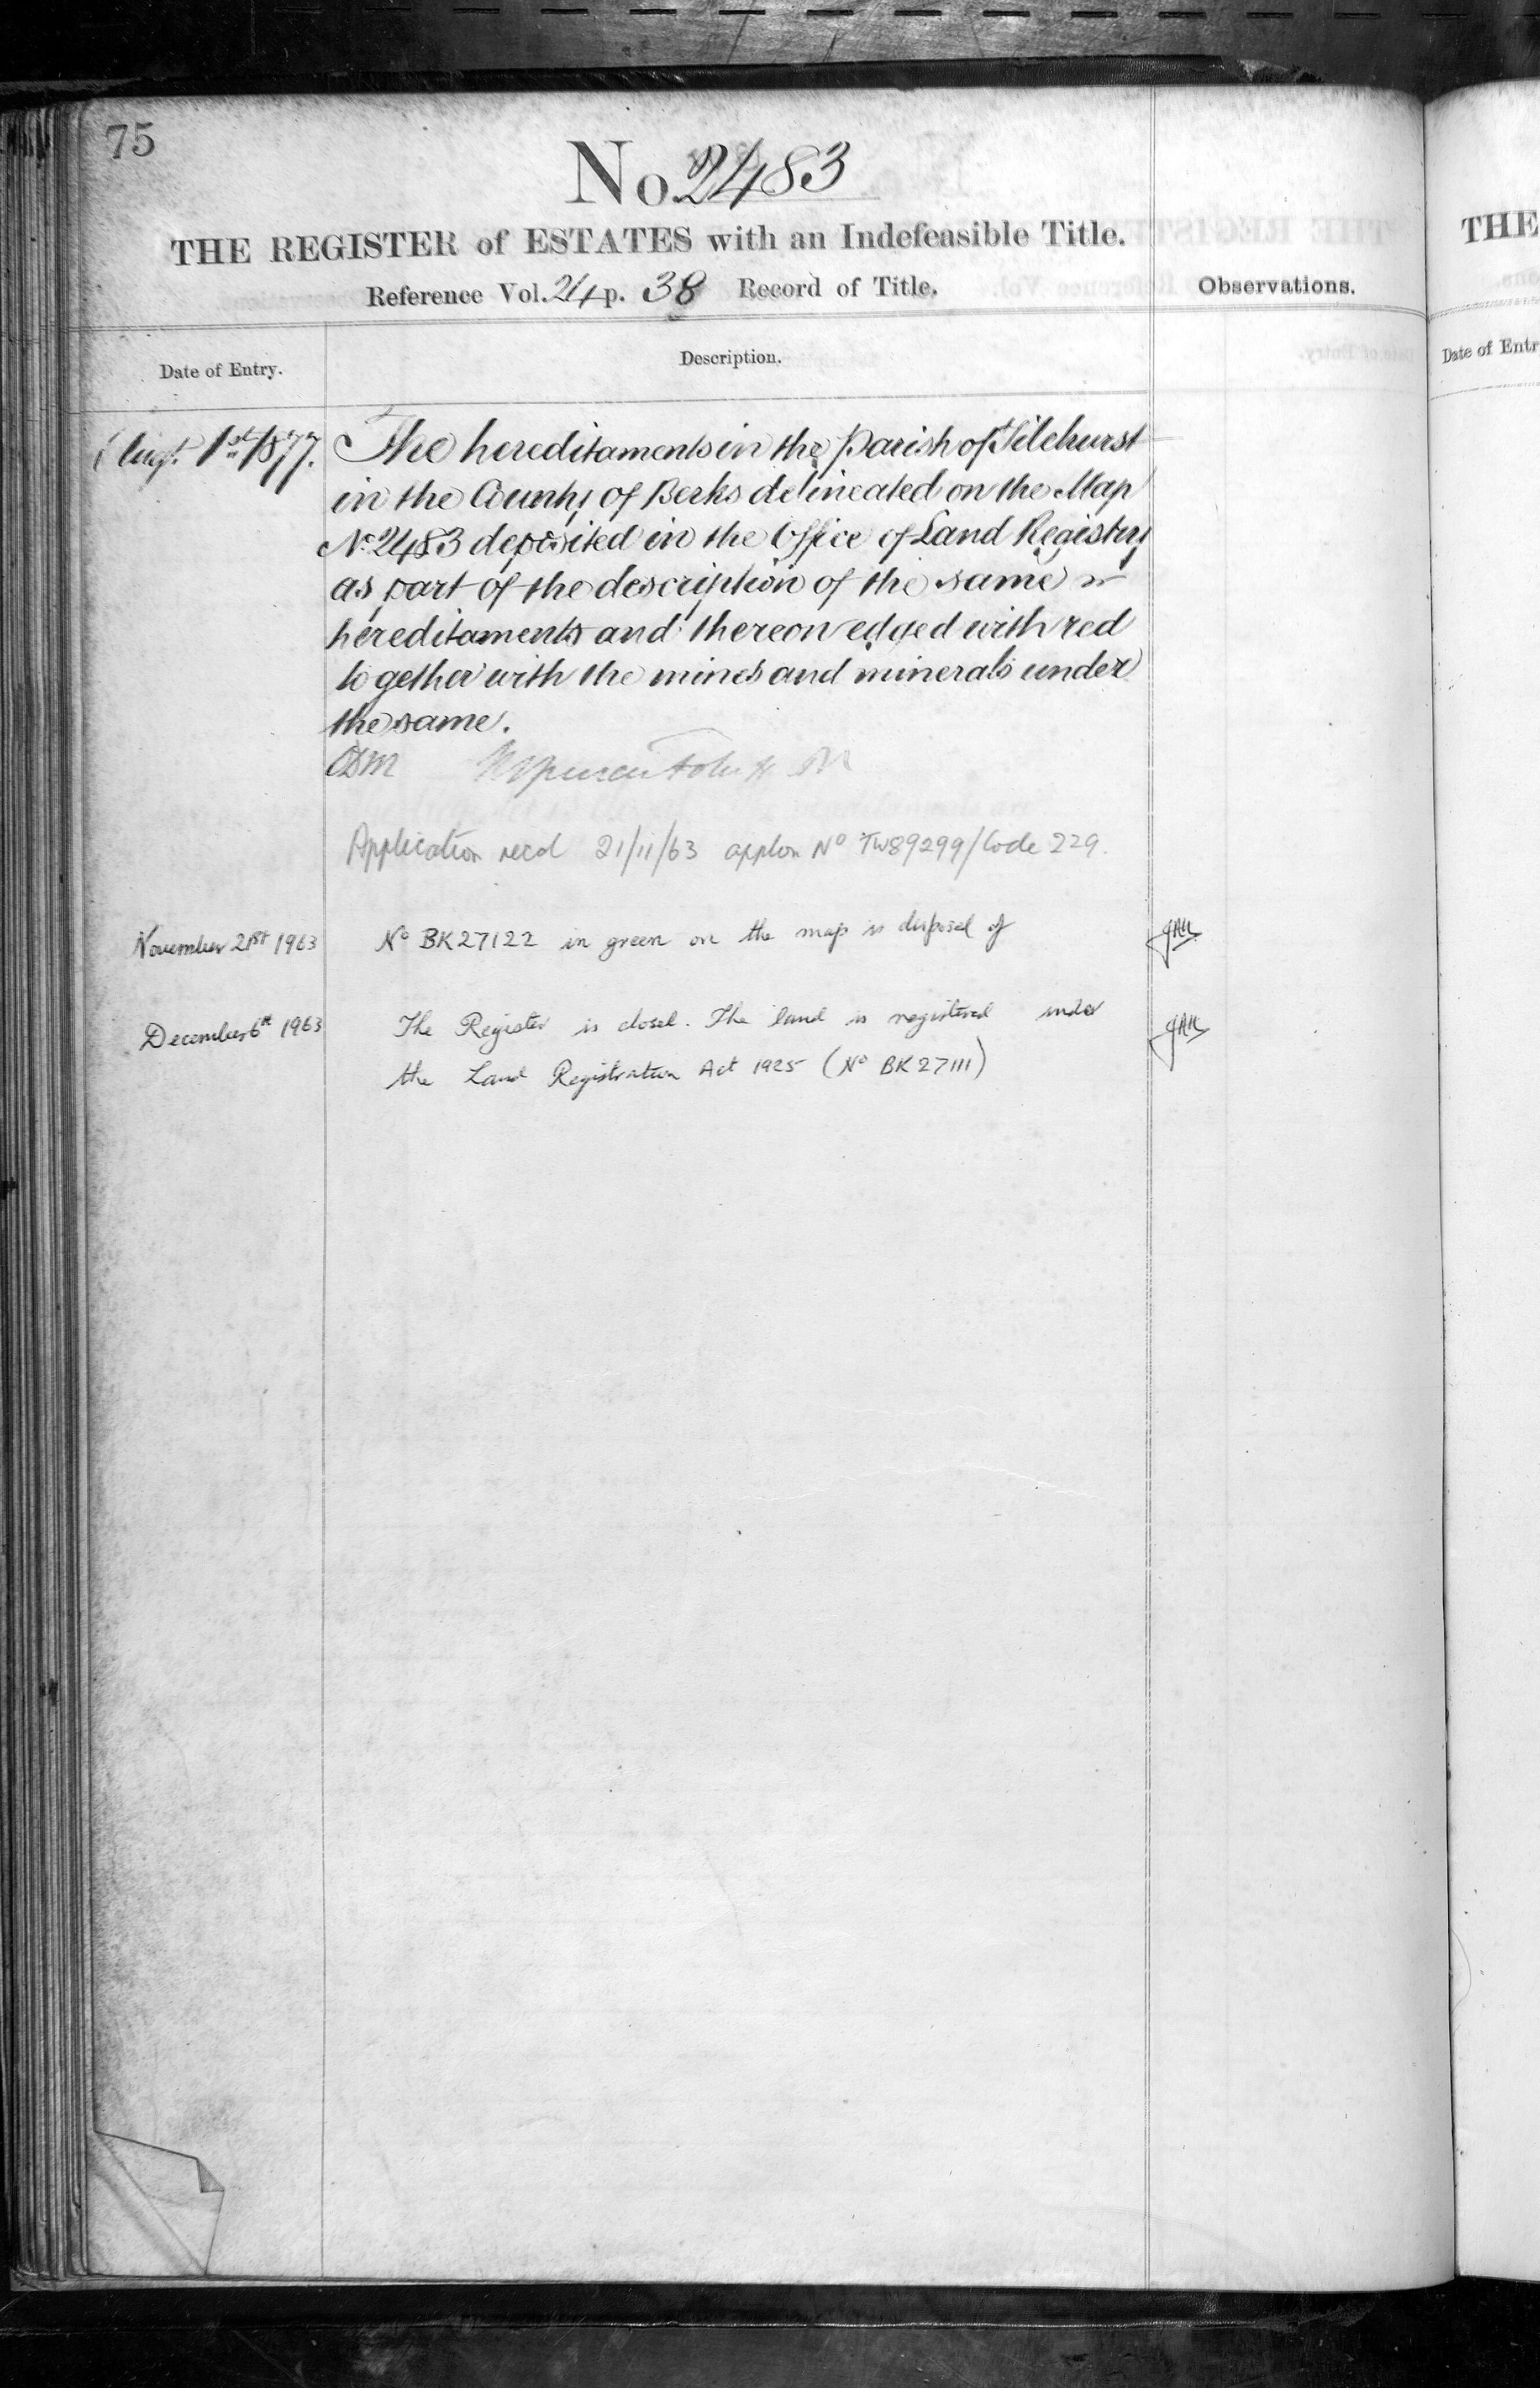 75
No. 2483
THE REGISTER of ESTATES with an Indefeasible Title.
Reference Vol. 24 p. 38 Record of Title.
Observations.
Date of Entry.
Description.
Augt. 1st 1877.
The hereditaments in the Parish of Tilehurst
in the County of Berks delineated on the Map
No. 2483 deposited in the Office of Land Registry
as part of the description of the same
hereditaments and thereon edged with red
together with the mines and minerals under
the same.
Application recd 21/11/63 applon No TW89299/Code 229.
November 21st 1963
No BK27122 in green on the map is disposed of
December 6th 1963
The Register is closed. The land is registered under
the Land Registration Act 1925 (No BK27111)
THE
Date of Entr